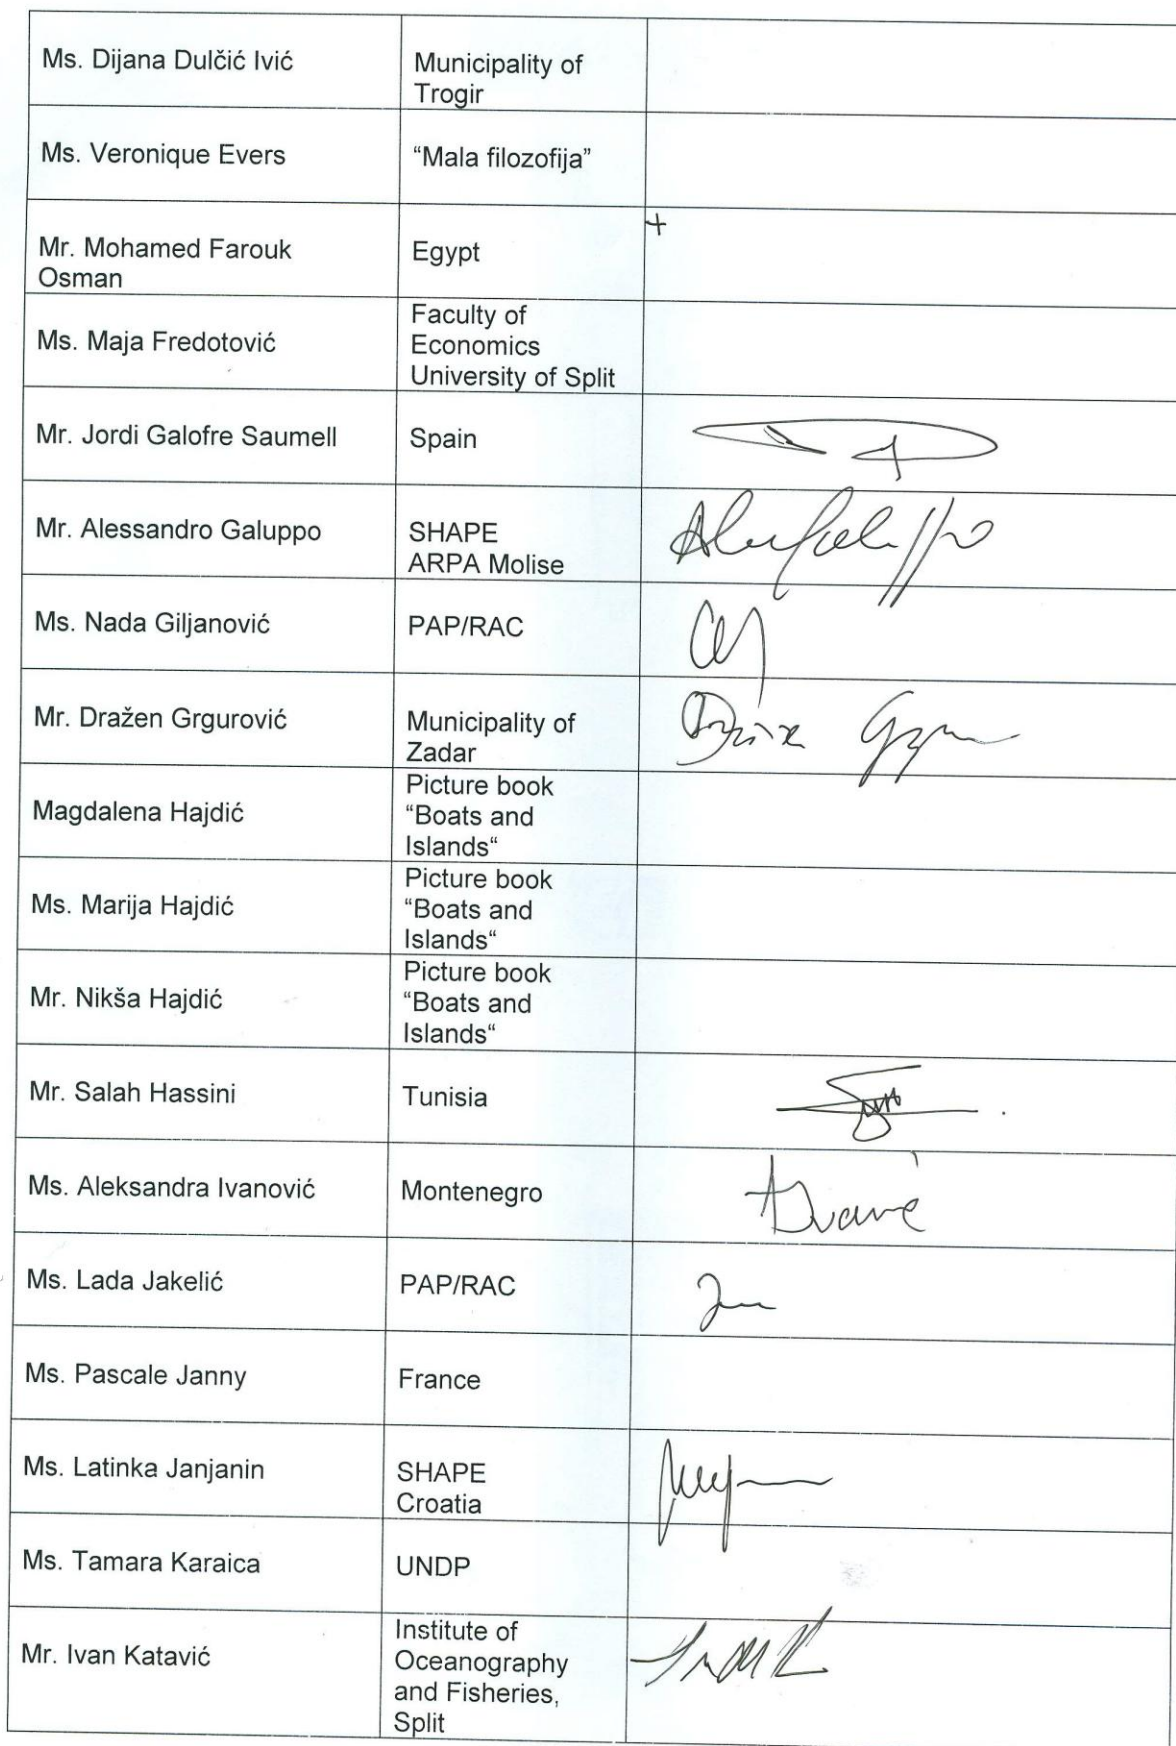 Ms. Dijana Dulčić Ivić
Municipality of
Trogir
Ms. Veronique Evers
“Mala filozofija”
Mr. Mohamed Farouk
Osman
Egypt
+
Ms. Maja Fredotović
Faculty of
Economics
University of Split
Mr. Jordi Galofre Saumell
Spain
Mr. Alessandro Galuppo
SHAPE
ARPA Molise
Ms. Nada Giljanović
PAP/RAC
Mr. Dražen Grgurović
Municipality of
Zadar
Magdalena Hajdić
Picture book
“Boats and
Islands“
Ms. Marija Hajdić
Picture book
“Boats and
Islands“
Mr. Nikša Hajdić
Picture book
“Boats and
Islands“
Mr. Salah Hassini
Tunisia
Ms. Aleksandra Ivanović
Montenegro
Ms. Lada Jakelić
PAP/RAC
Ms. Pascale Janny
France
Ms. Latinka Janjanin
SHAPE
Croatia
Ms. Tamara Karaica
UNDP
Mr. Ivan Katavić
Institute of
Oceanography
and Fisheries,
Split